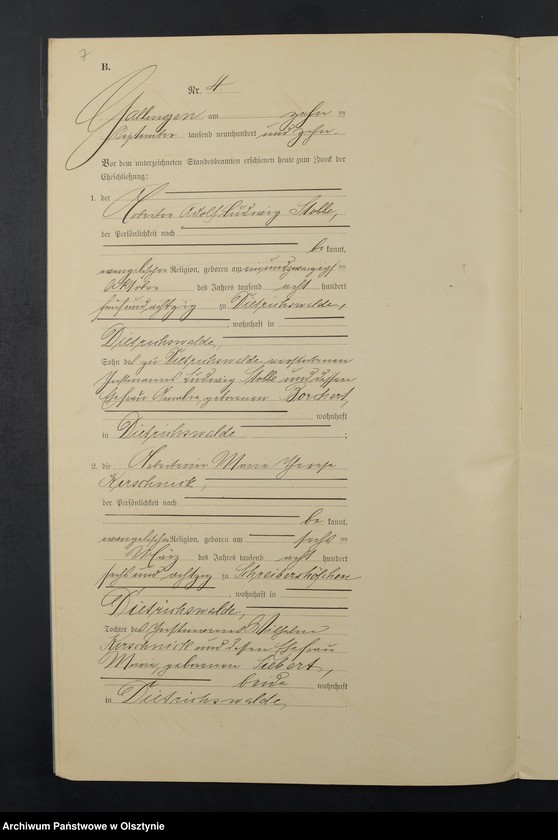 7
B.
Nr. 4
Gallingen am zehn ten
September tausend neunhundert und zehn.
Vor dem unterzeichneten Standesbeamten erschienen heute zum Zweck der
Eheschließung:
1. der
Arbeiter Adolf Ludwig Stolle,
der Persönlichkeit nach
be kannt,
evangelischer Religion, geboren am einundzwanzig ten
Oktober des Jahres tausend acht hundert
fünfundachtzig zu Dietrichswalde,
, wohnhaft in
Dietrichswalde,
Sohn des zu Dietrichswalde verstorbenen
Instmanns Ludwig Stolle und dessen
Ehefrau Amalie, geborenen Borchert,
wohnhaft
in Dietrichswalde ;
2. die Arbeiterin Marie Therese
Kerschnick,
der Persönlichkeit nach
be kannt,
evangelischer Religion, geboren am sechs ten
März des Jahres tausend acht hundert
sechs und achtzig zu Schreibershöfchen
, wohnhaft in
Dietrichswalde,
Tochter des Instmanns Wilhelm
Kerschnick und dessen Ehefrau
Marie, geborenen Siebert,
beide wohnhaft
in Dietrichswalde.
Archiwum Państwowe w Olsztynie